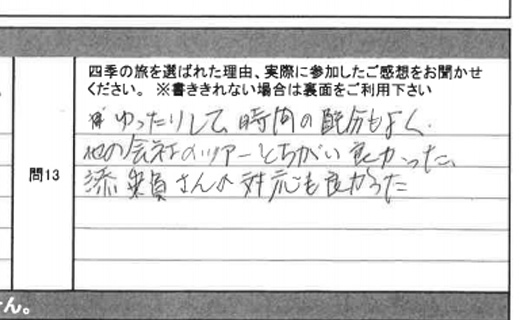 四季の旅を選ばれた理由、実際に参加したご感想をお聞かせ
ください。 ※書ききれない場合は裏面をご利用下さい
ゆったりして、時間の配分もよく、
他の会社のツアーとちがい良かった、
問13
添乗員さんの対応も良かった
せん。